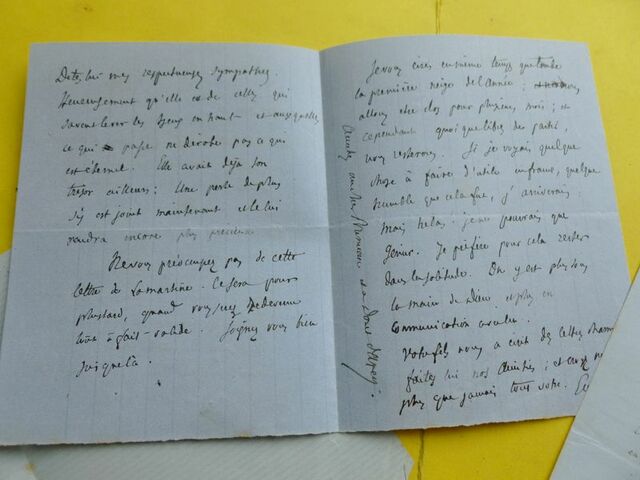 Dites lui mes respectueuses sympathies.
Heureusement qu'elle est de celles qui
savent lever les yeux en haut et auxquelles
ce qui passe ne dérobe pas ce qui
est éternel. Elle avait déjà son
trésor ailleurs; Une perle de plus
s'y est joint maintenant et le lui
rendra encore plus précieux.
Ne vous préoccupez pas de cette
lettre de Lamartine. Ce sera pour
plus tard, quand vous serez redevenu
tout à fait solide. Soignez vous bien
jusque là.
Je vous écris en même temps que tombe
la première neige de l'année; nous
allons être clos pour plusieurs mois; et
cependant quoique libres de partir,
nous resterons. Si je voyais quelque
chose à faire d'utile en france, quelque
humble que cela fut, j'arriverais:
mais hélas. je ne pourrais que
gémir. Je préfère pour cela rester
dans la solitude. On y est plus sous
la main de Dieu et plus en
communication avec lui.
Votre fils nous a écrit des lettres
faites lui nos amitiés; et
plus que jamais tout votre.